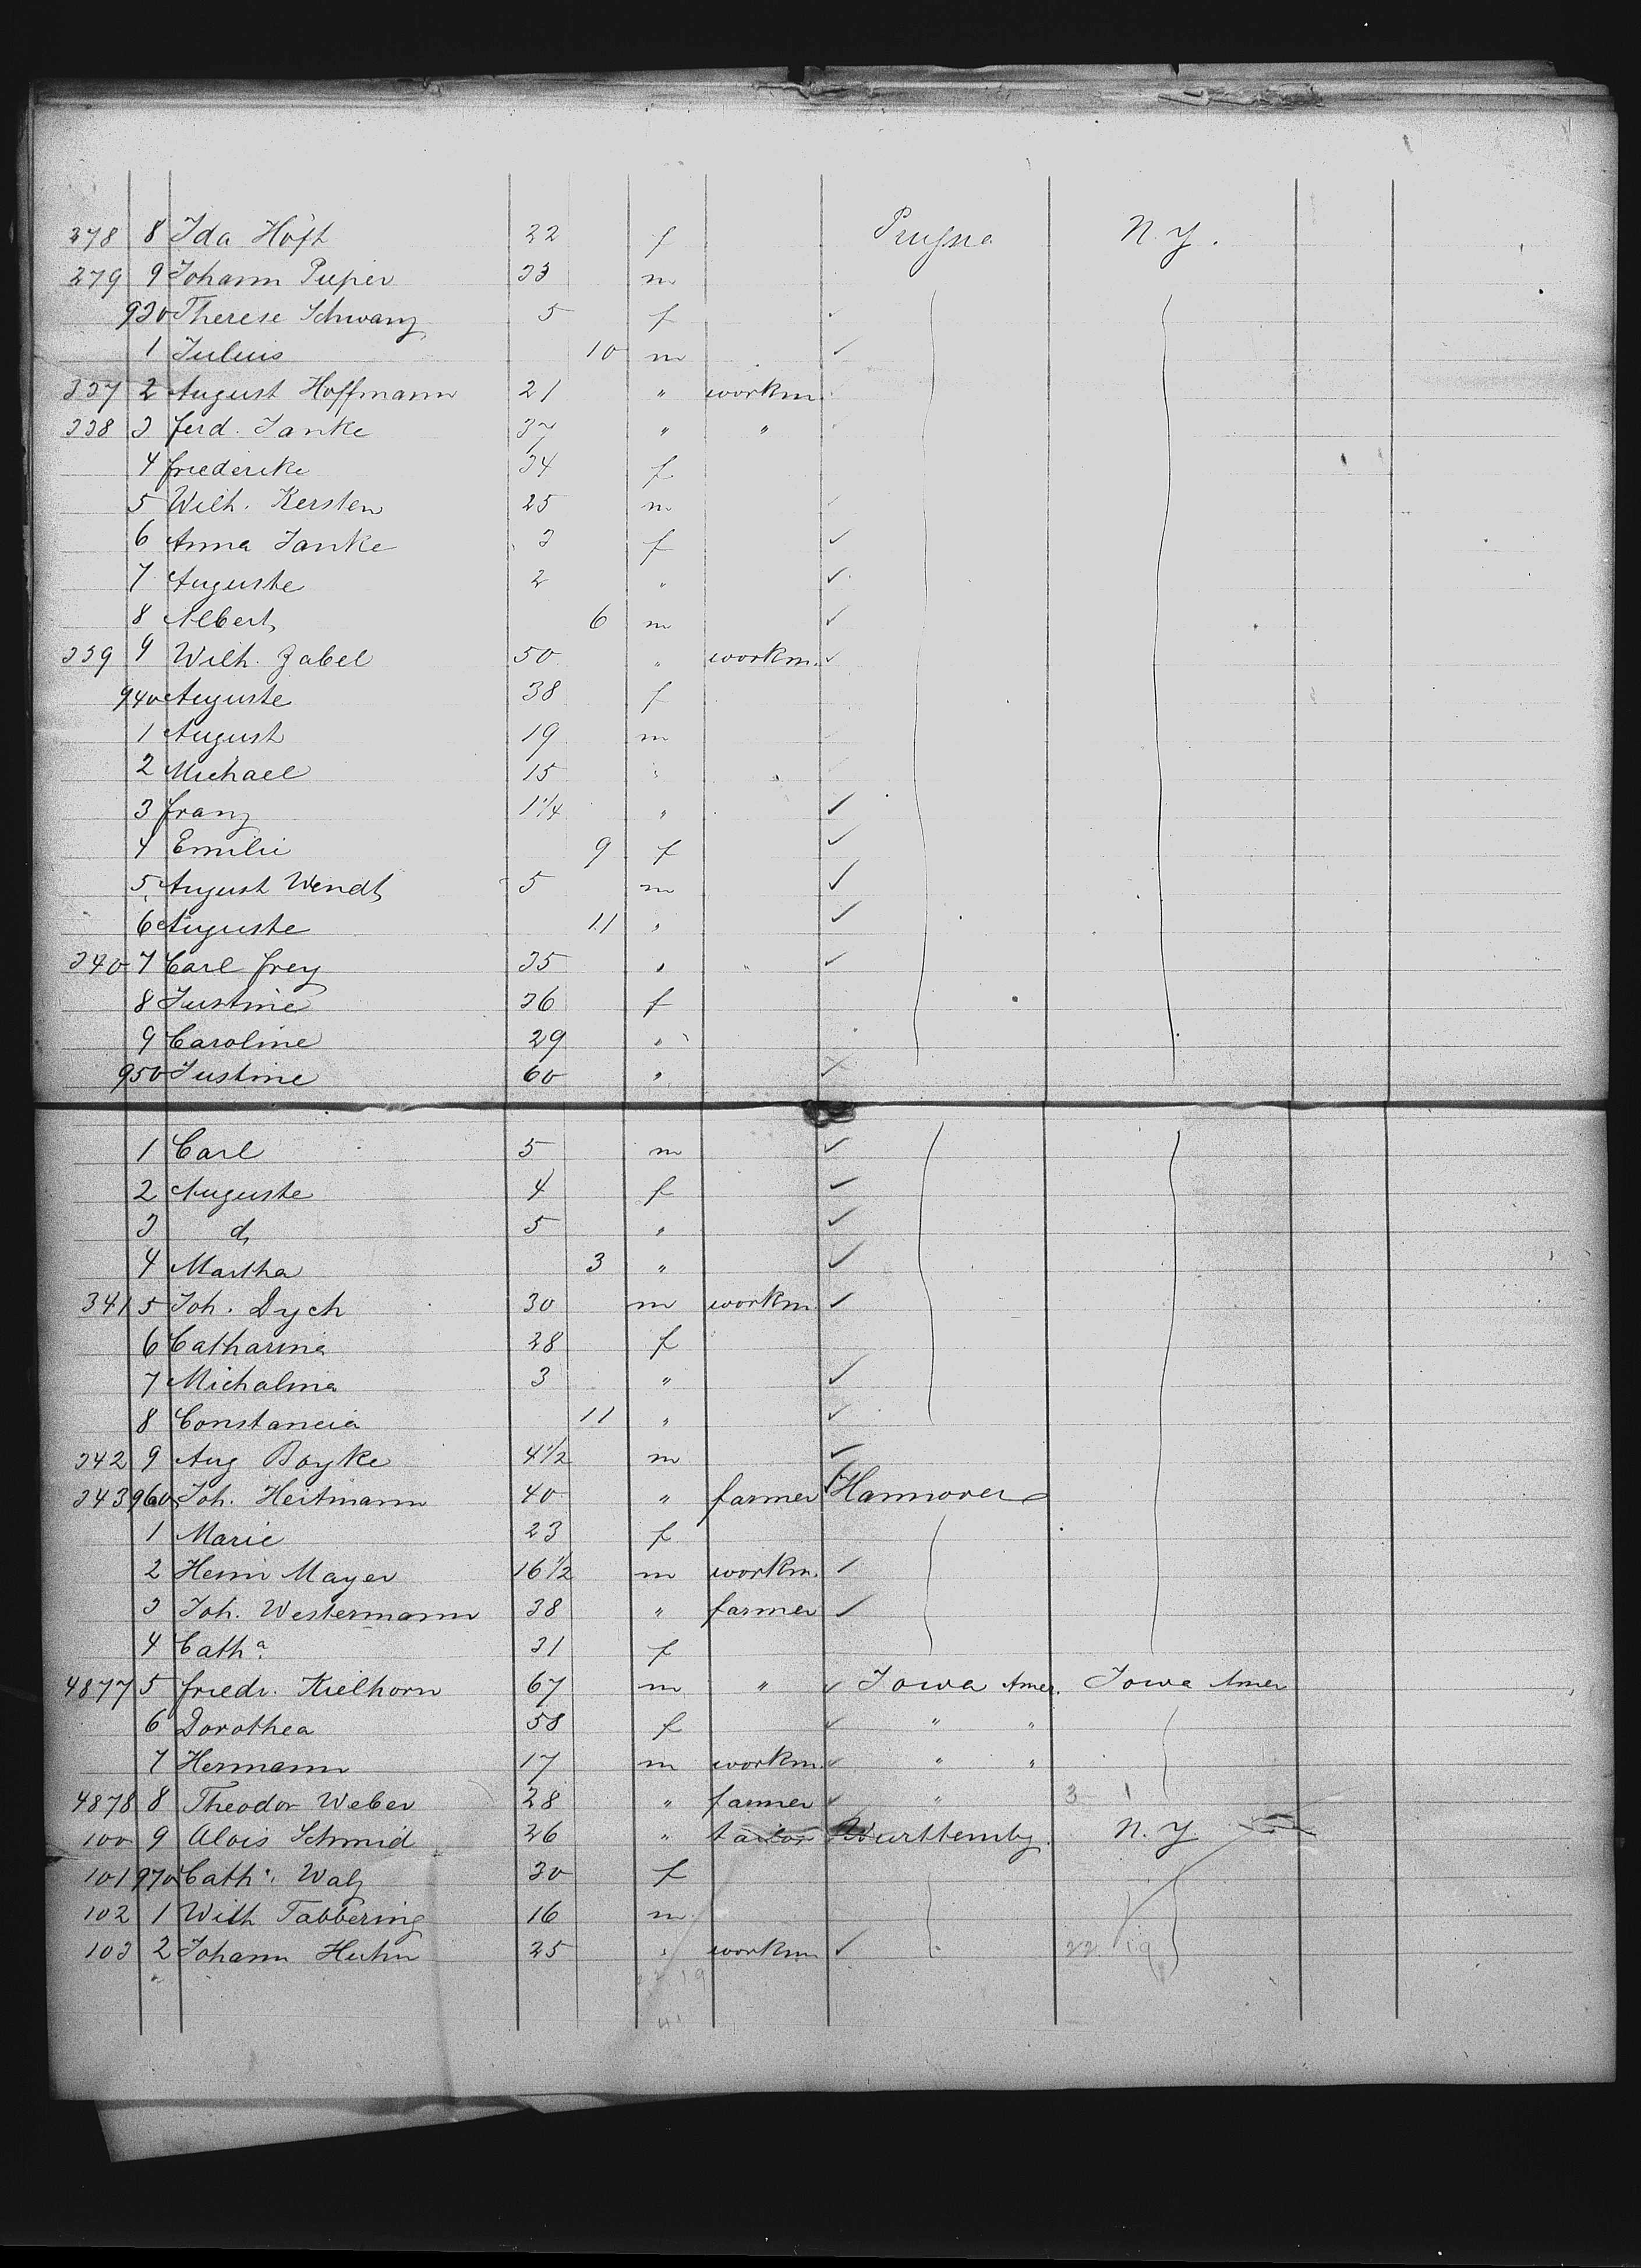 378 8 Ida Höft 22 f Prussia N.Y.
379 9 Johann Pieper 33 m
930 Therese Schwanz 5 f
1 Julius 10 m
337 2 August Hoffmann 21 " workm.
338 3 Ferd. Janke 32 " "
4 Friederike 34 f
5 Wilh. Kersten 25 m
6 Anna Janke 3 f
7 Auguste 2 "
8 Albert 6 m
339 9 Wilh. Zabel 50 " workm.
940 Auguste 38 f
1 August 19 m
2 Michael 15 "
3 Franz 1 1/4 "
4 Emilie 9 f
5 August Wendt 5 m
6 Auguste 11 "
340 7 Carl Frey 35 " "
8 Justine 36 f
9 Caroline 29 "
950 Justine 60 "
1 Carl 5 m
2 Auguste 4 f
3 d. 5 "
4 Martha 3 "
341 5 Joh. Dych 30 m workm
6 Catharina 28 f
7 Michalina 3 "
8 Constancia 11 "
342 9 Aug Boyke 4 1/2 m
343 960 Joh. Heitmann 40 " farmer Hannover
1 Marie 23 f
2 Heinr Mayer 16 1/2 m workm.
3 Joh. Westermann 38 " farmer
4 Catha. 31 f
4877 5 Friedr. Kielhorn 67 m " Iowa Amer. Iowa Amer
6 Dorothea 58 f " "
7 Hermann 17 m workm. " "
4878 8 Theodor Weber 28 " farmer " 3 1
100 9 Alois Schmid 26 " tailor Württembg. N.Y
101 970 Catha. Walz 30 f
102 1 Wilh Tabbering 16 m
103 2 Johann Huhn 25 " workm " 22 19
19